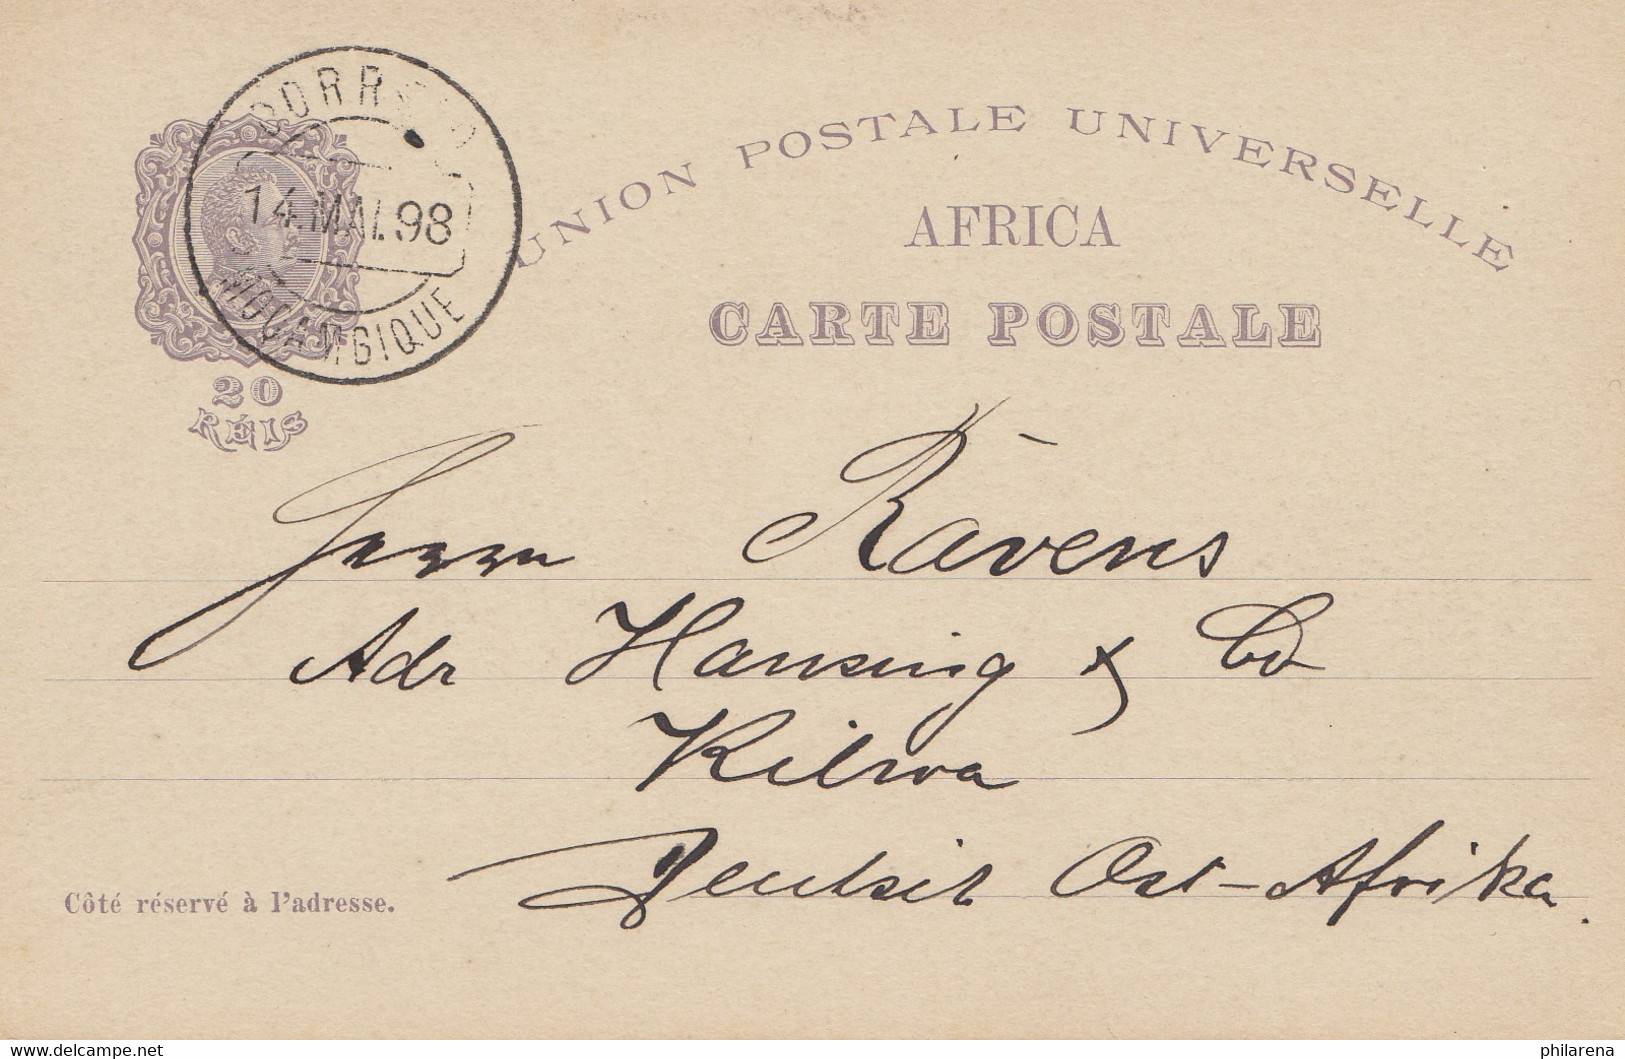 CORREIO
14.MAI.98
MOÇAMBIQUE
UNION POSTALE UNIVERSELLE
AFRICA
CARTE POSTALE
20
RÉIS
Herrn Rāvens
Adr Hansing & Co
Kilwa
Deutsch Ost-Afrika.
Côté réservé à l'adresse.
www.delcampe.net
philarena